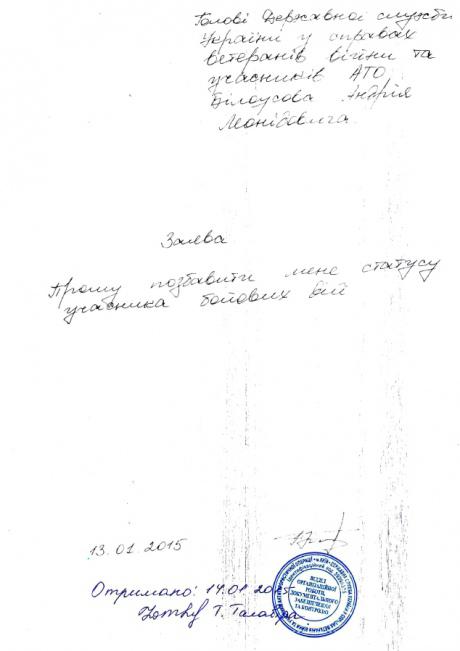 Голові Державної служби
України у справах
ветеранів війни та
учасників АТО
Білоусова Андрія
Леонідовича
Заява
Прошу позбавити мене статусу
учасника бойових дій
13.01 2015
Отримано: 14.01 2015
Т.
ВІДДІЛ
ОРГАНІЗАЦІЙНОЇ
РОБОТИ,
ДОКУМЕНТАЛЬНОГО
ЗАБЕЗПЕЧЕННЯ
ТА КОНТРОЛЮ